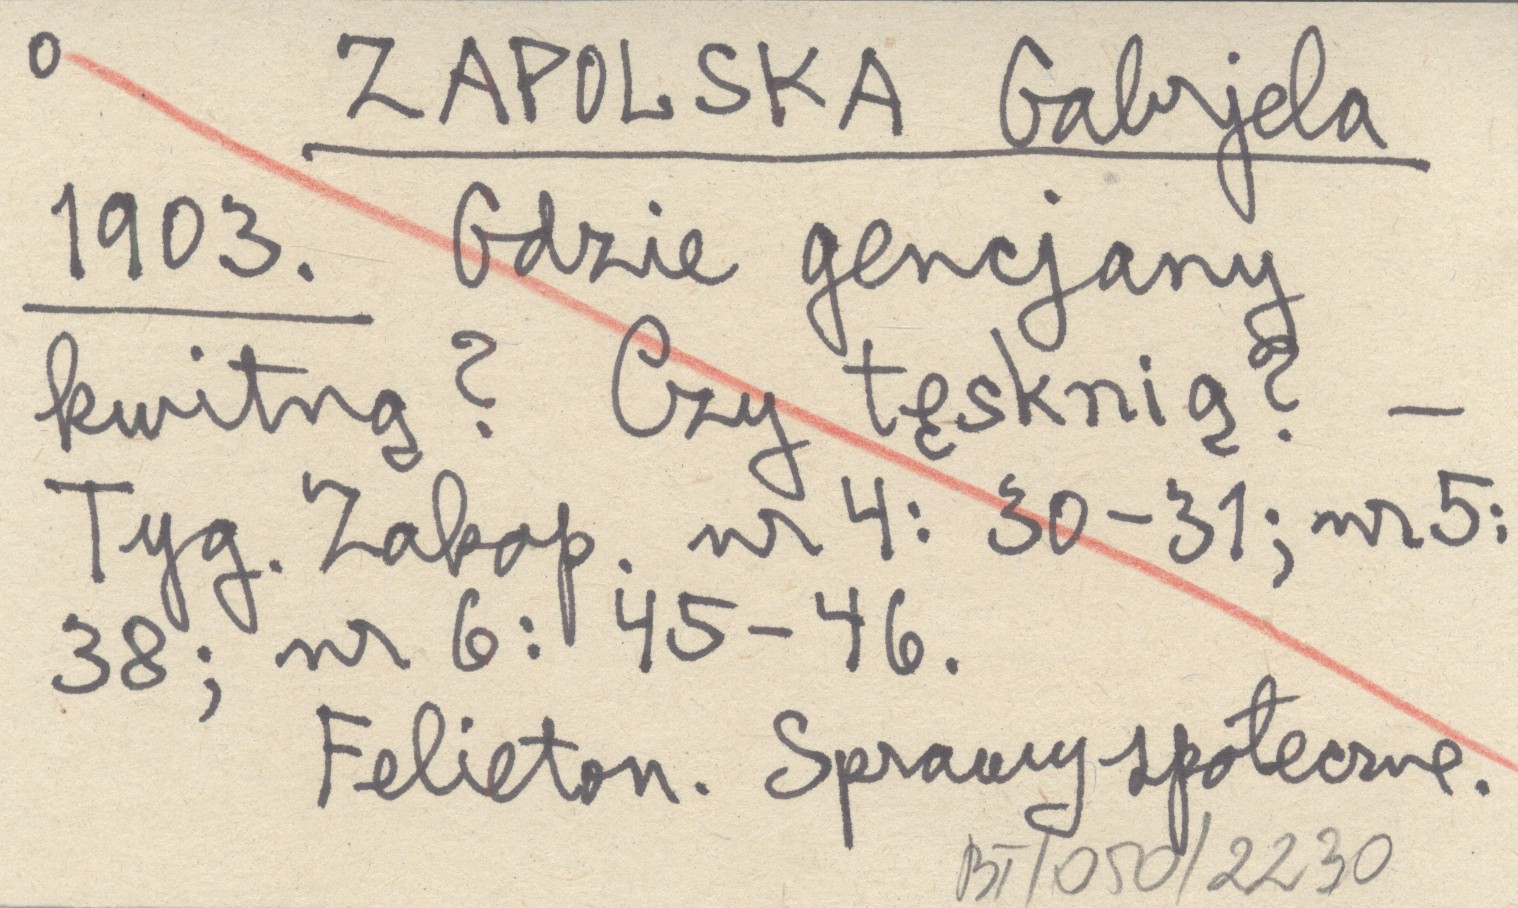 o ZAPOLSKA Gabrjela
1903. Gdzie gencjany
kwitną? Czy tęsknią? –
Tyg. Zakop. nr 4: 30-31; nr 5:
38; nr 6: 45-46.
Felieton. Sprawy społeczne.
BT/050/2230